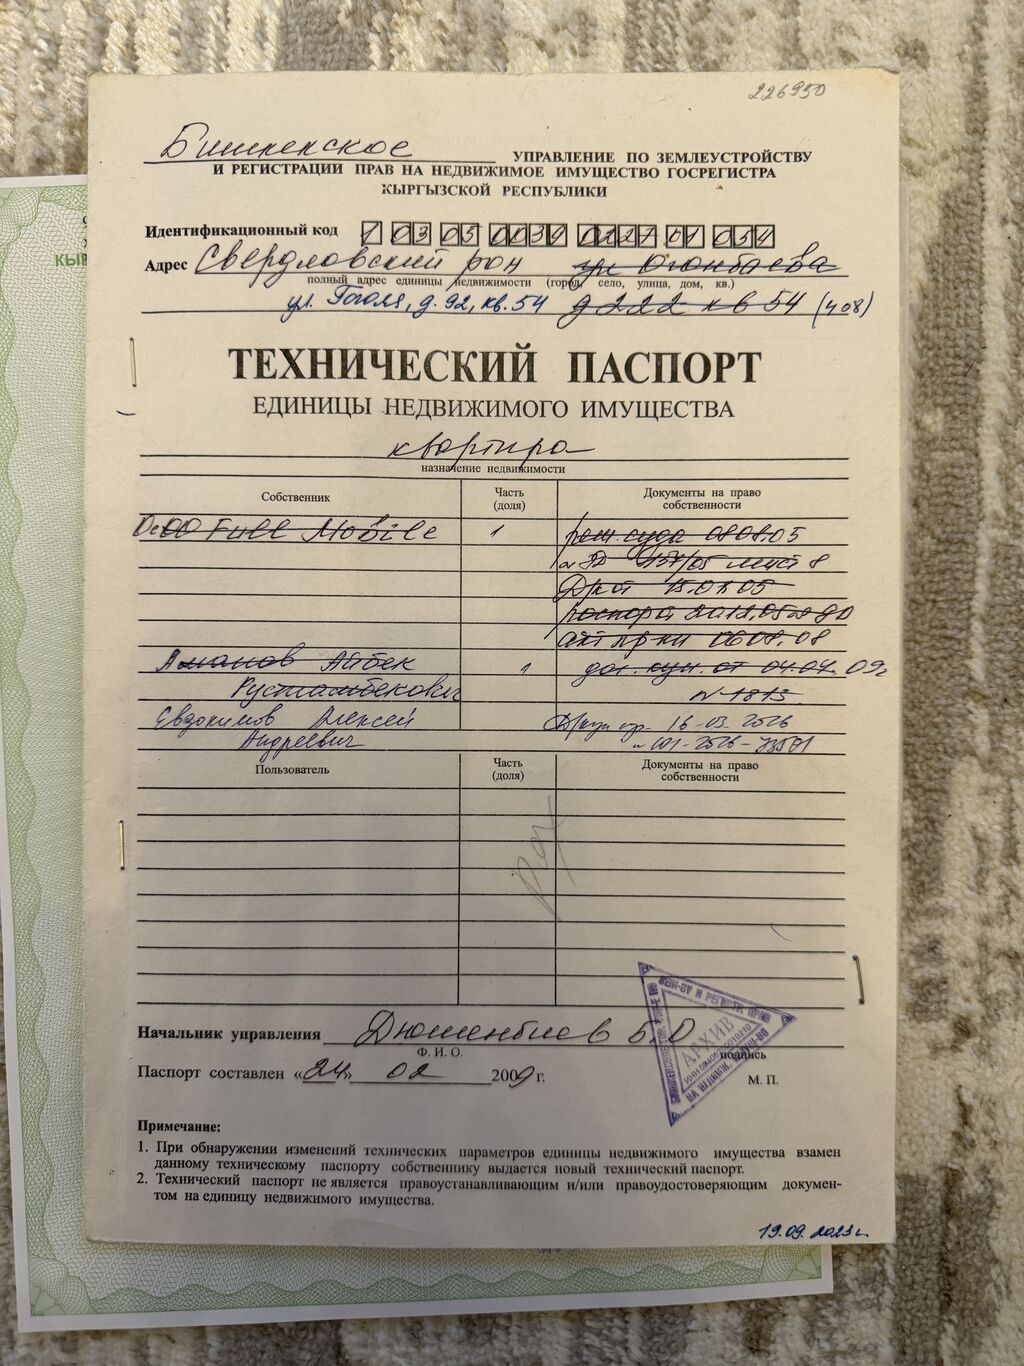 226950
Бишкекское УПРАВЛЕНИЕ ПО ЗЕМЛЕУСТРОЙСТВУ
И РЕГИСТРАЦИИ ПРАВ НА НЕДВИЖИМОЕ ИМУЩЕСТВО ГОСРЕГИСТРА
КЫРГЫЗСКОЙ РЕСПУБЛИКИ
Идентификационный код 1 03 05 0034 0227 01 054
Адрес Свердловский рон ул Огонбаева
полный адрес единицы недвижимости (город, село, улица, дом, кв.)
ул. Гоголя, д. 92, кв. 54 д 222 кв 54 (408)
ТЕХНИЧЕСКИЙ ПАСПОРТ
ЕДИНИЦЫ НЕДВИЖИМОГО ИМУЩЕСТВА
квартира
назначение недвижимости
Собственник Часть (доля) Документы на право собственности
ОсОО Full Mobile 1 реш. суда 08 08.05
лист 8
15.01.05
20.12.05
акт пр ки 06 08.08
Аманов Айбек 1 дог. куп. от 04.04.09г
Рустамбекович N-1813
Евдокимов Алексей 16-03-2026
Андреевич
Пользователь Часть (доля) Документы на право собственности
Начальник управления Дюшенбиев Б.О
Ф. И. О. подпись
АРХИВ
Паспорт составлен «24» 02 2009 г.
М. П.
Примечание:
1. При обнаружении изменений технических параметров единицы недвижимого имущества взамен
данному техническому паспорту собственнику выдается новый технический паспорт.
2. Технический паспорт не является правоустанавливающим и/или правоудостоверяющим докумен-
том на единицу недвижимого имущества.
19.09.2023г.